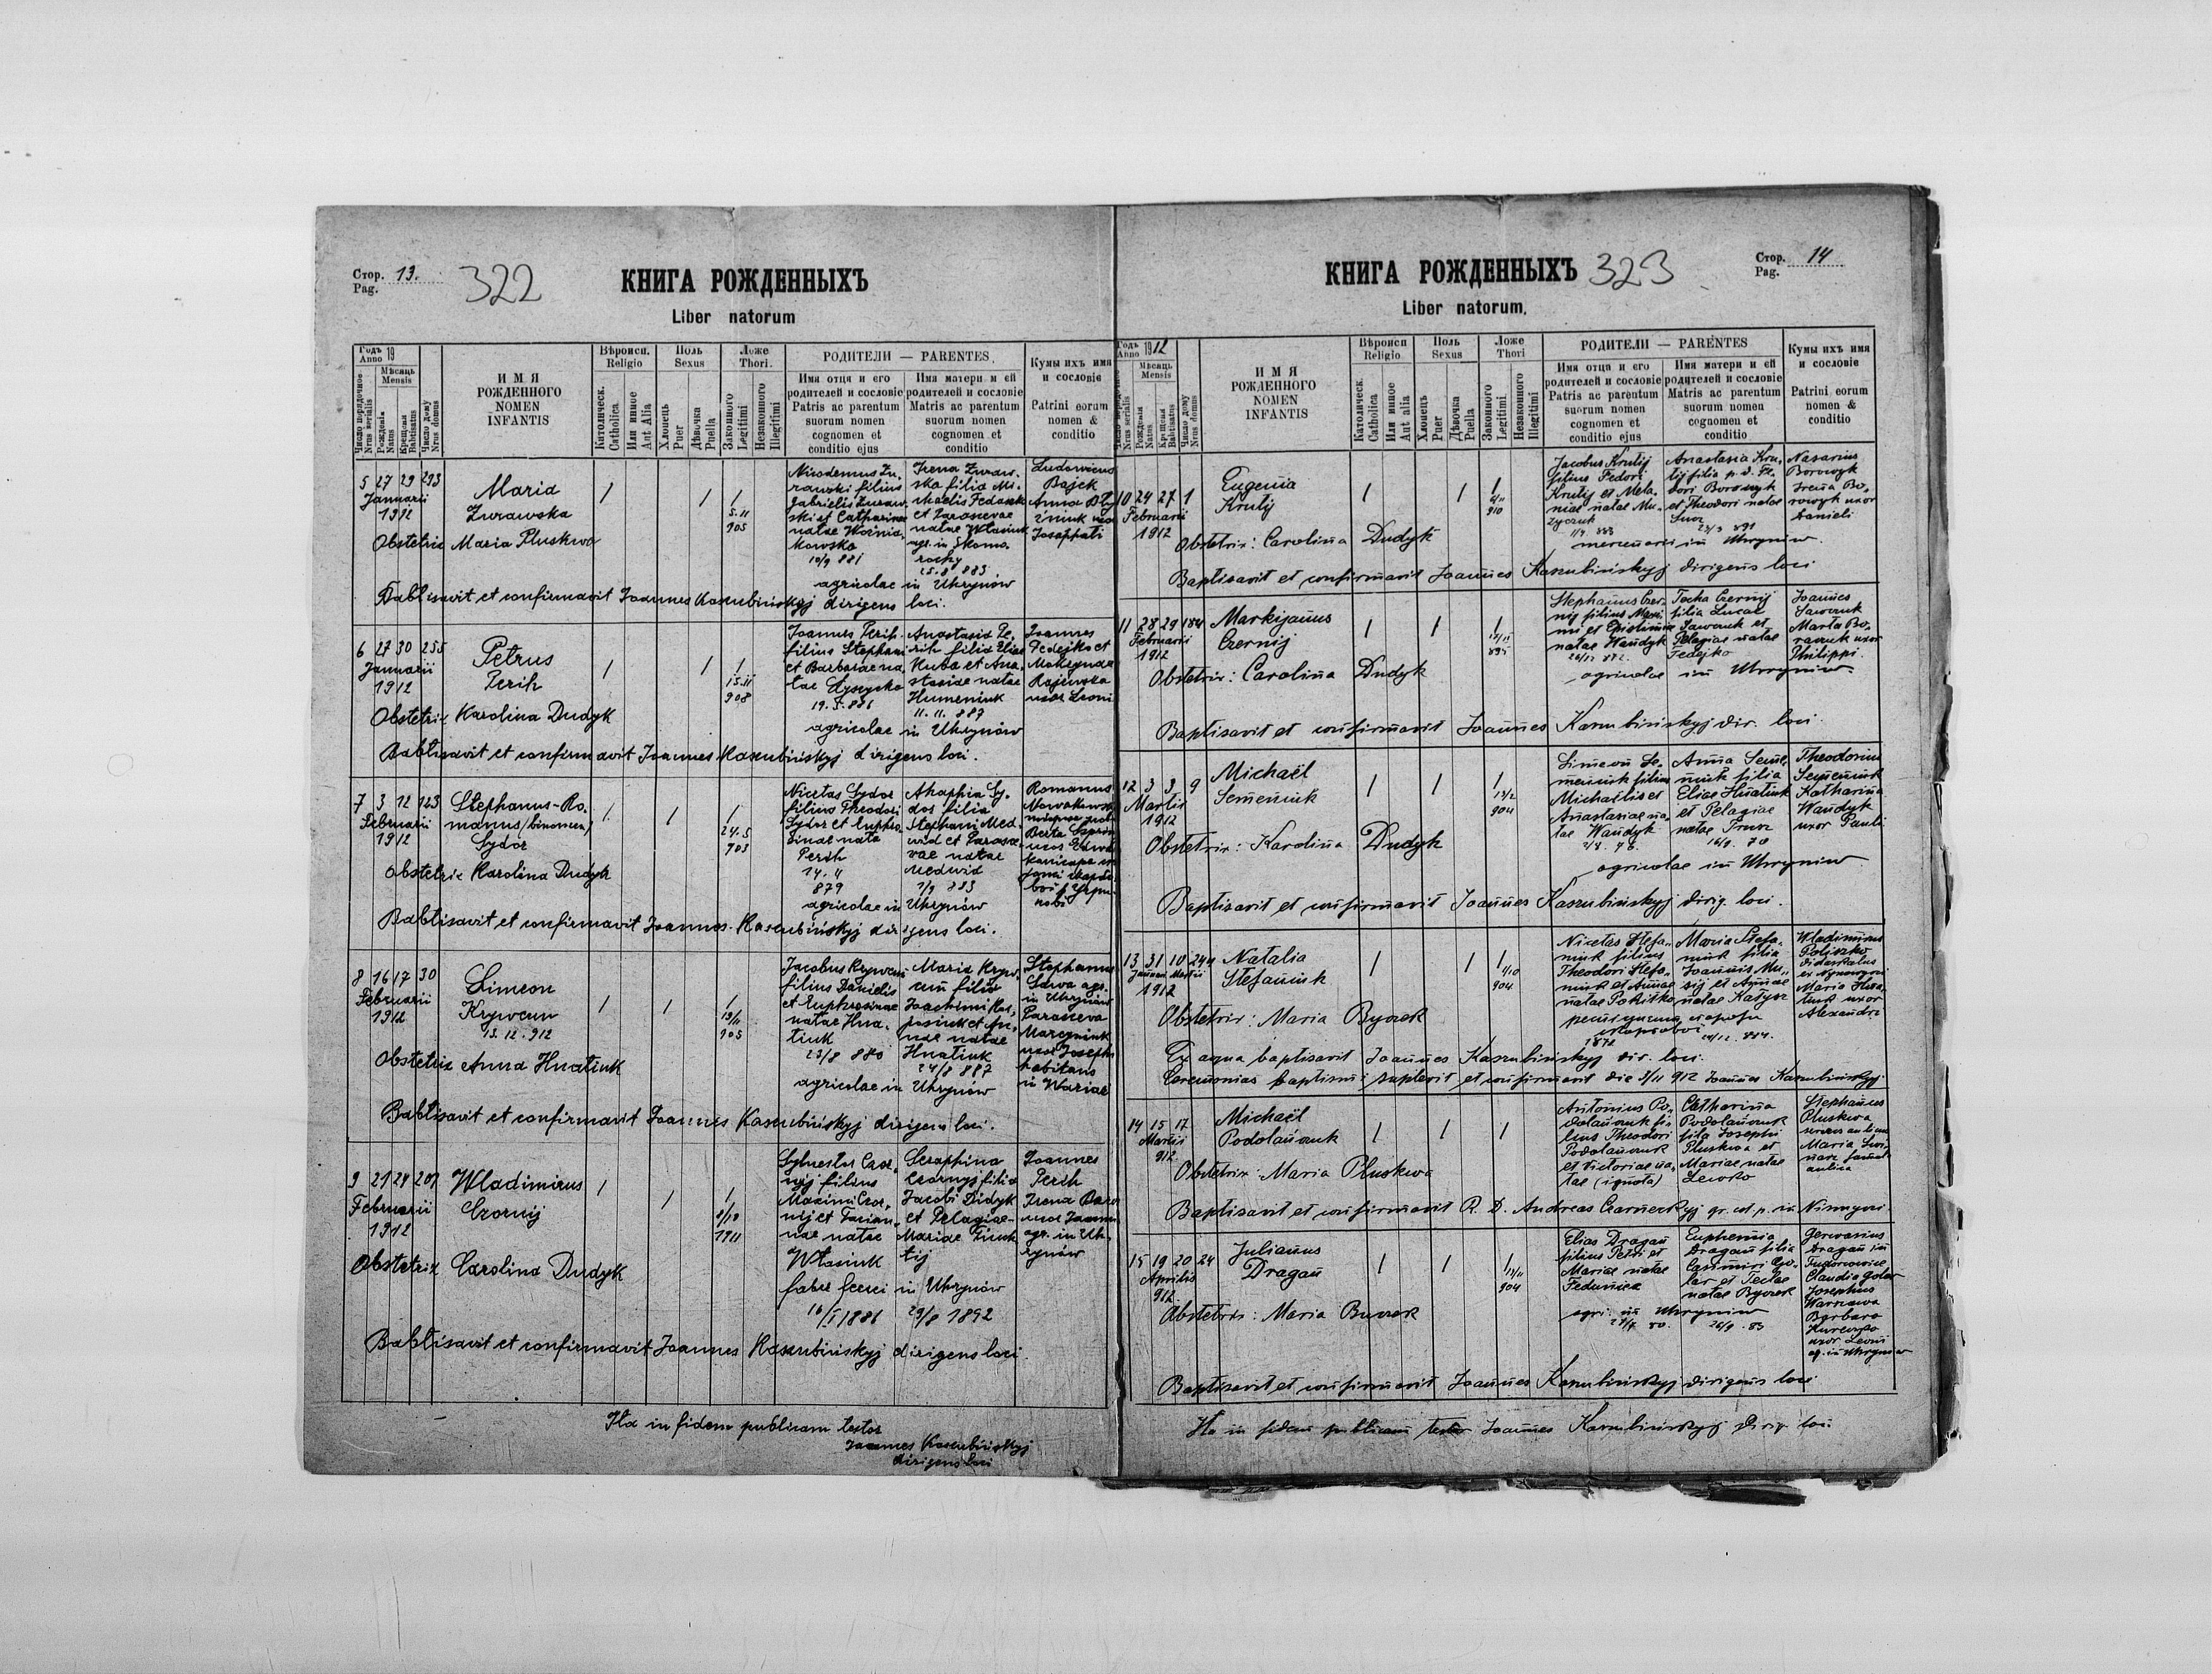 Стор. 13.
Pag.
322
КНИГА РОЖДЕННЫХЪ
Liber natorum
Годъ 19
Anno
Мѣсяць
Mensis
Число порядочное
Nrus serialis
Рожденія
Natus
Крещенія
Babtisatus
Число дому
Nrus domus
ИМЯ
РОЖДЕННОГО
NOMEN
INFANTIS
Вѣроисп.
Religio
Католическ.
Catholica
Или инное
Aut Alia
Поль
Sexus
Хлопець
Puer
Дѣвочка
Puella
Ложе
Thori.
Законного
Legitimi
Незаконного
Illegitimi
РОДИТЕЛИ — PARENTES.
Имя отця и его
родителей и сословіе
Patris ac parentum
suorum nomen
cognomen et
conditio ejus
Имя матери и ей
родителей и сословіе
Matris ac parentum
suorum nomen
cognomen et
conditio
Кумы ихъ имя
и сословіе
Patrini eorum
nomen &
conditio
5 27 29 293
Januarii
1912
Maria
Zurawska
Obstetrix Maria Pluskwa
5.11
905
Nicodemus Zu-
rawski filius
Gabrielis Zuraw-
ski et Catharinae
natae Woźnia-
kowska
10/9 881
Irena Zuraw-
ska filia Mi-
chaelis Fedasuk
et Parascevae
natae Własiuk
agr. in Skomo-
rochy
25.8 883
Ludovicus
Bajek
Josaphati
agricolae in Uhrynów
Babtisavit et confirmavit Joannes Kaszubińskyj dirigens loci.
6 27 30 255
Januarii
1912
Petrus
Perih
Obstetrix Karolina Dudyk
15.11
908
Joannes Perih
filius Stephani
et Barbarae na-
tae Łysycka
Anastasia Pe-
rih filia Eliae
Kuba et Ana-
stasiae natae
Humeniuk
11.11.887
Joannes
Fedejko et
Makrynae
Rajewska
uxor Leoni
agricolae in Uhrynów
Babtisavit et confirmavit Joannes Kaszubińskyj dirigens loci.
7 3 12 123
Februarii
1912
Stephanus-Ro-
manus (binomen)
Sydor
Obstetrix Karolina Dudyk
24.5
903
Nicetas Sydor
filius Theodori
Sydor et Euphro-
sinae nata
Perih
14.4
879
Ahaphia Sy-
dor filia
Stephani Med-
wid et Parasce-
vae natae
Medwid
1/9 883
Romanus
agricolae in Uhrynów
Babtisavit et confirmavit Joannes Kaszubińskyj dirigens loci.
8 16 17 30
Februarii
1912
Simeon
Krywcun
13.12.912
Obstetrix Anna Hnatiuk
19/11
905
Jacobus Krywcun
filius Danielis
et Euphrosinae
natae Hna-
tiuk
23/8 880
Maria Kryw-
cun filia
Joachimi
et An-
nae natae
Hnatiuk
24/8 887
Stephanus
Sawa agr.
in Uhrynów
Parasceva
Marcyniuk
uxor Josephi
habitans
in Wariae
agricolae in Uhrynów
Babtisavit et confirmavit Joannes Kaszubińskyj dirigens loci.
9 21 24 207
Februarii
1912
Wladimirus
Czornij
Obstetrix Carolina Dudyk
1911
Sylvester Czor-
nyj filius
Maximi Czor-
nij et Tacian-
nae natae
Własiuk
Seraphina
Czornyj filia
Jacobi Didyk
et Pelagiae-
Mariae
Joannes
Perih
Irena
agr. in Uh-
rynów
faber ferri in Uhrynów
16/I 1886 29/8 1892
Babtisavit et confirmavit Joannes Kaszubińskyj dirigens loci.
Ita in fidem publicam testor
Joannes Kaszubińskyj
dirigens loci
Стор. 14
Pag.
КНИГА РОЖДЕННЫХЪ 323
Liber natorum.
Годъ 1912
Anno
Мѣсяць
Mensis
Nrus serialis
Рожденія
Natus
Крещенія
Babtisatus
Число дому
Nrus domus
ИМЯ
РОЖДЕННОГО
NOMEN
INFANTIS
Вѣроисп
Religio
Католическ.
Catholica
Или инное
Aut alia
Поль
Sexus
Хлопець
Puer
Дѣвочка
Puella
Ложе
Thori
Законного
Legitimi
Незаконного
Illegitimi
РОДИТЕЛИ — PARENTES
Имя отця и его
родителей и сословіе
Patris ac parentum
suorum nomen
cognomen et
conditio ejus
Имя матери и ей
родителей и сословіе
Matris ac parentum
suorum nomen
cognomen et
conditio
Кумы ихъ имя
и сословіе
Patrini eorum
nomen &
conditio
10 24 27 1
Februarii
1912
Eugenia
Krutij
Obstetrix: Carolina Dudyk
910
Jacobus Krutij
filius Fedori
Krutij et Mela-
niae natae Mu-
zyczuk
Anastasia Kru-
tij filia p. d. Fe-
dori Borowyk
et Theodori natae
Nasarius
Borowyk
Irena Bo-
rowyk uxor
Danieli
mercenarii in Uhryniw.
Baptisavit et confirmavit Joannes Kaszubińskyj dirigens loci
11 28 29 184
Februarii
1912
Markijanus
Czernij
Obstetrix: Carolina Dudyk
895
Stephanus Czer-
nij filius Maxi-
mi et
natae Wandyk
Techa Czernij
filia Lucae
Sawczuk et
Pelagiae natae
Fedejko
Joannes
Sawczuk
Marta Bo-
raczuk uxor
Philippi.
agricolae in Uhryniw
Baptisavit et confirmavit Joannes Kaszubińskyj dir. loci.
12 3 3 9
Martii
1912
Michaël
Semeniuk
Obstetrix: Karolina Dudyk
904
Simeon Se-
meniuk filius
Michaëlis et
Anastasiae na-
tae Wandyk
Anna Seme-
niuk filia
Eliae Hnatiuk
et Pelagiae
natae
Theodorius
Semeniuk
Katharina
Wandyk
uxor Pauli
agricolae in Uhryniw
Baptisavit et confirmavit Joannes Kaszubińskyj dirig. loci.
13 31 10
Januarii Martii
1912
Natalia
Stefaniuk
Obstetrix: Maria Byczek
4/10
904
Nicetas Stefa-
niuk filius
Theodori Stefa-
niuk et Annae
natae Pokitko
Maria Stefa-
niuk filia
Joannis Mu-
sij et Annae
natae Katysz
Wladimirus
Poliszko
didaskalus
Maria Hna-
tiuk uxor
Alexandri
Ex aqua baptisavit Joannes Kaszubińskyj dir. loci.
Ceremonias baptismi suplevit et confirmavit die 3/11 912 Joannes Kaszubińskyj
14 15 17
Martii
912
Michaël
Podolańczuk
Obstetrix: Maria Pluskwa
Antonius Po-
dolańczuk fi-
lius Theodori
Podolańczuk
et Victoriae na-
tae (ignota)
Catharina
Podolańczuk
filia Josephi
Pluskwa et
Mariae natae
Lewko
Stephanus
Pluskwa
Maria
Baptisavit et confirmavit R. D. Andreas Czarneckyj gr. cat. p. in
15 19 20 24
Aprilis
912
Julianus
Dragan
Obstetrix: Maria Byczek
904
Elias Dragan
filius Petri et
Mariae natae
Fedunica
Euphemia
Dragan filia
Casimiri Go-
lar et Teclae
natae Byczek
Gervasius
Dragan in
Tudorcowice
Claudia Golar
Josephus
Warszawa
Barbara
uxor Leoni
ag. in Uhryniw
agr. in Uhryniw
Baptisavit et confirmavit Joannes Kaszubińskyj dirigens loci
Ita in fidem publicam testor Joannes Kaszubińskyj dirig. loci.